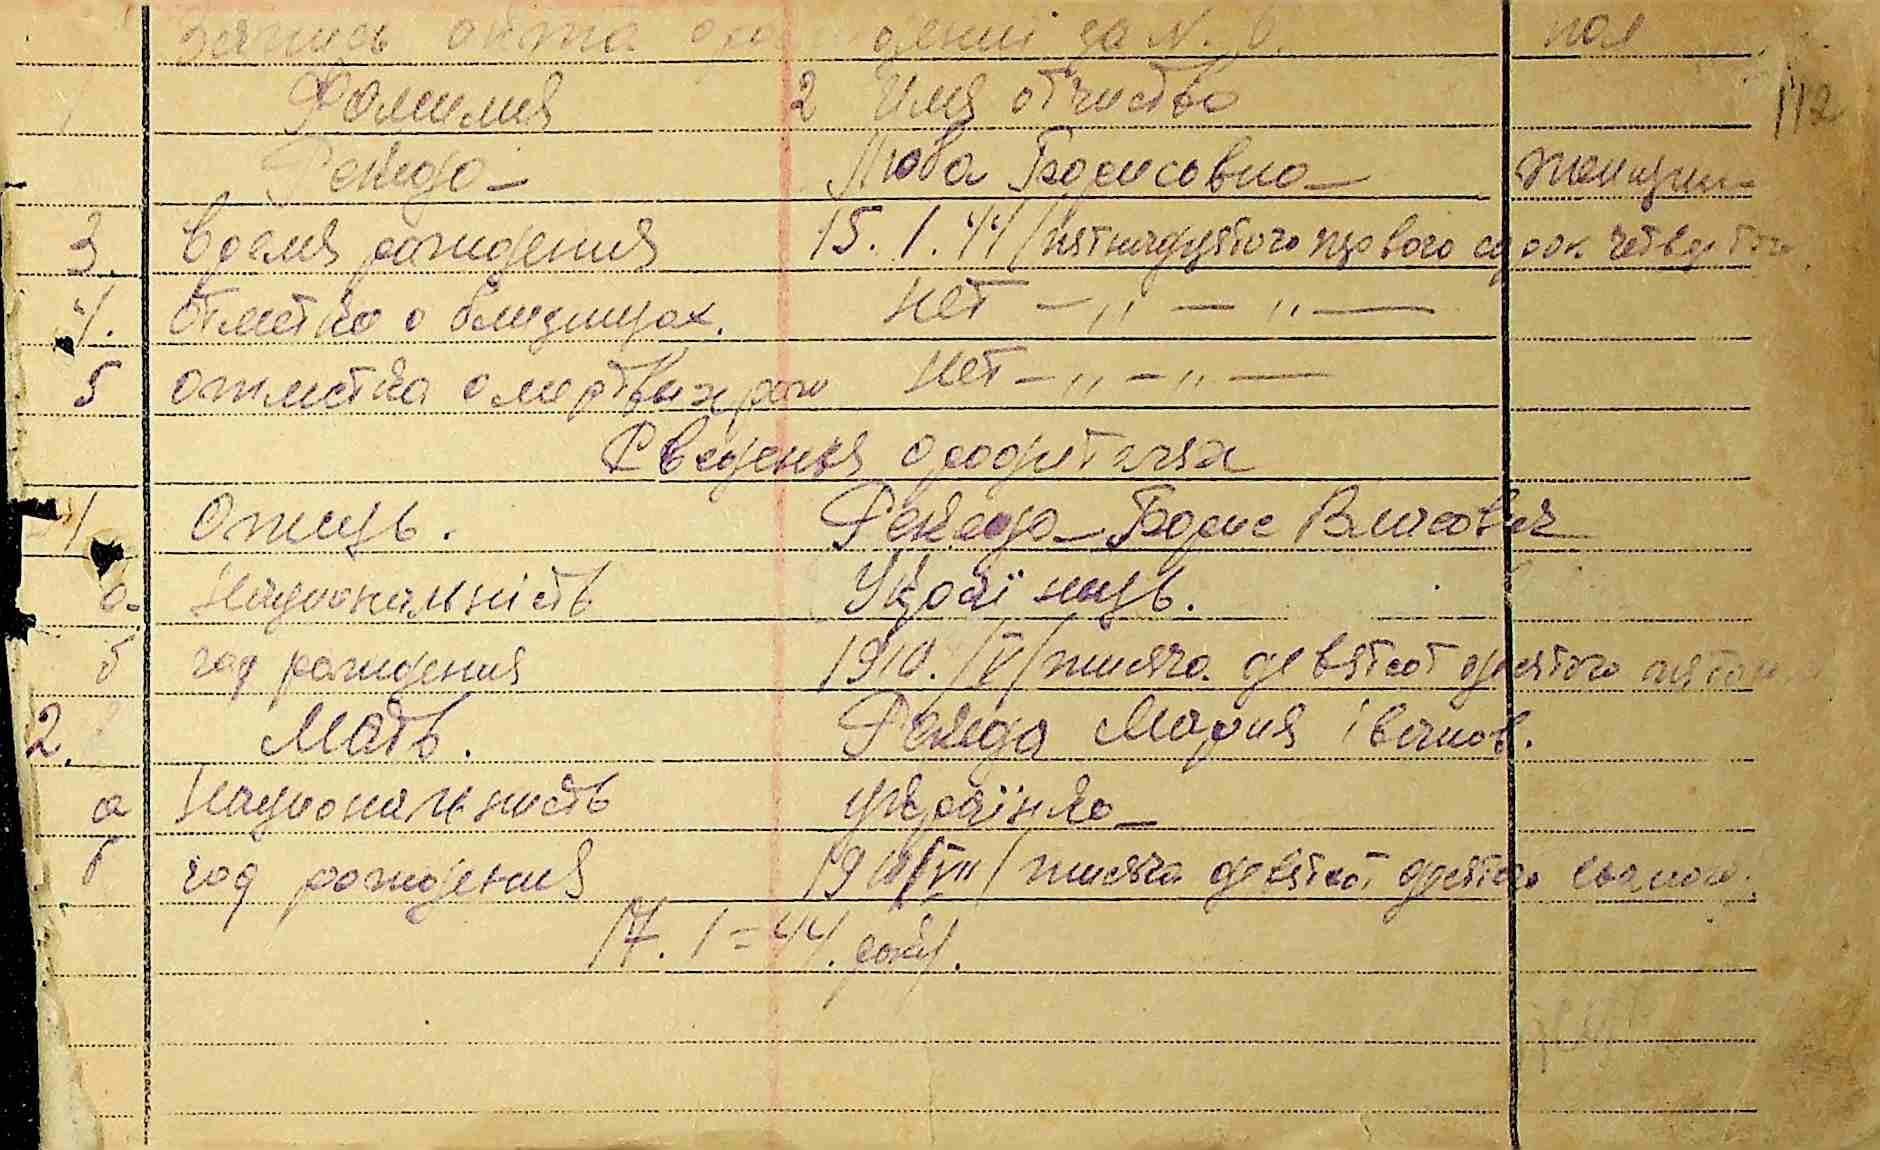 запись акта о рождении за N. 6. пол
1 Фамилия 2 Имя отчество 112
Рекеда Люба Борисовна женщин
3. Время рождения 15. 1. 44 /пятнадцятого первого сорок четвертого
4. Отметка о близнецах. нет — „ — „ —
5 отметка о мертвых рож нет — „ — „ —
Сведения о родителях
1 Отець. Рекеда Борис Власович
а. Национальність Українець.
б год рождения 1910. /V/ тисяча девятсот десятого пятого
2. Мать. Рекеда Мария Іванов.
а Национальность українка
б год рождения 1910 /VII/ тисяча девятсот десятого
17. 1 = 44. року.